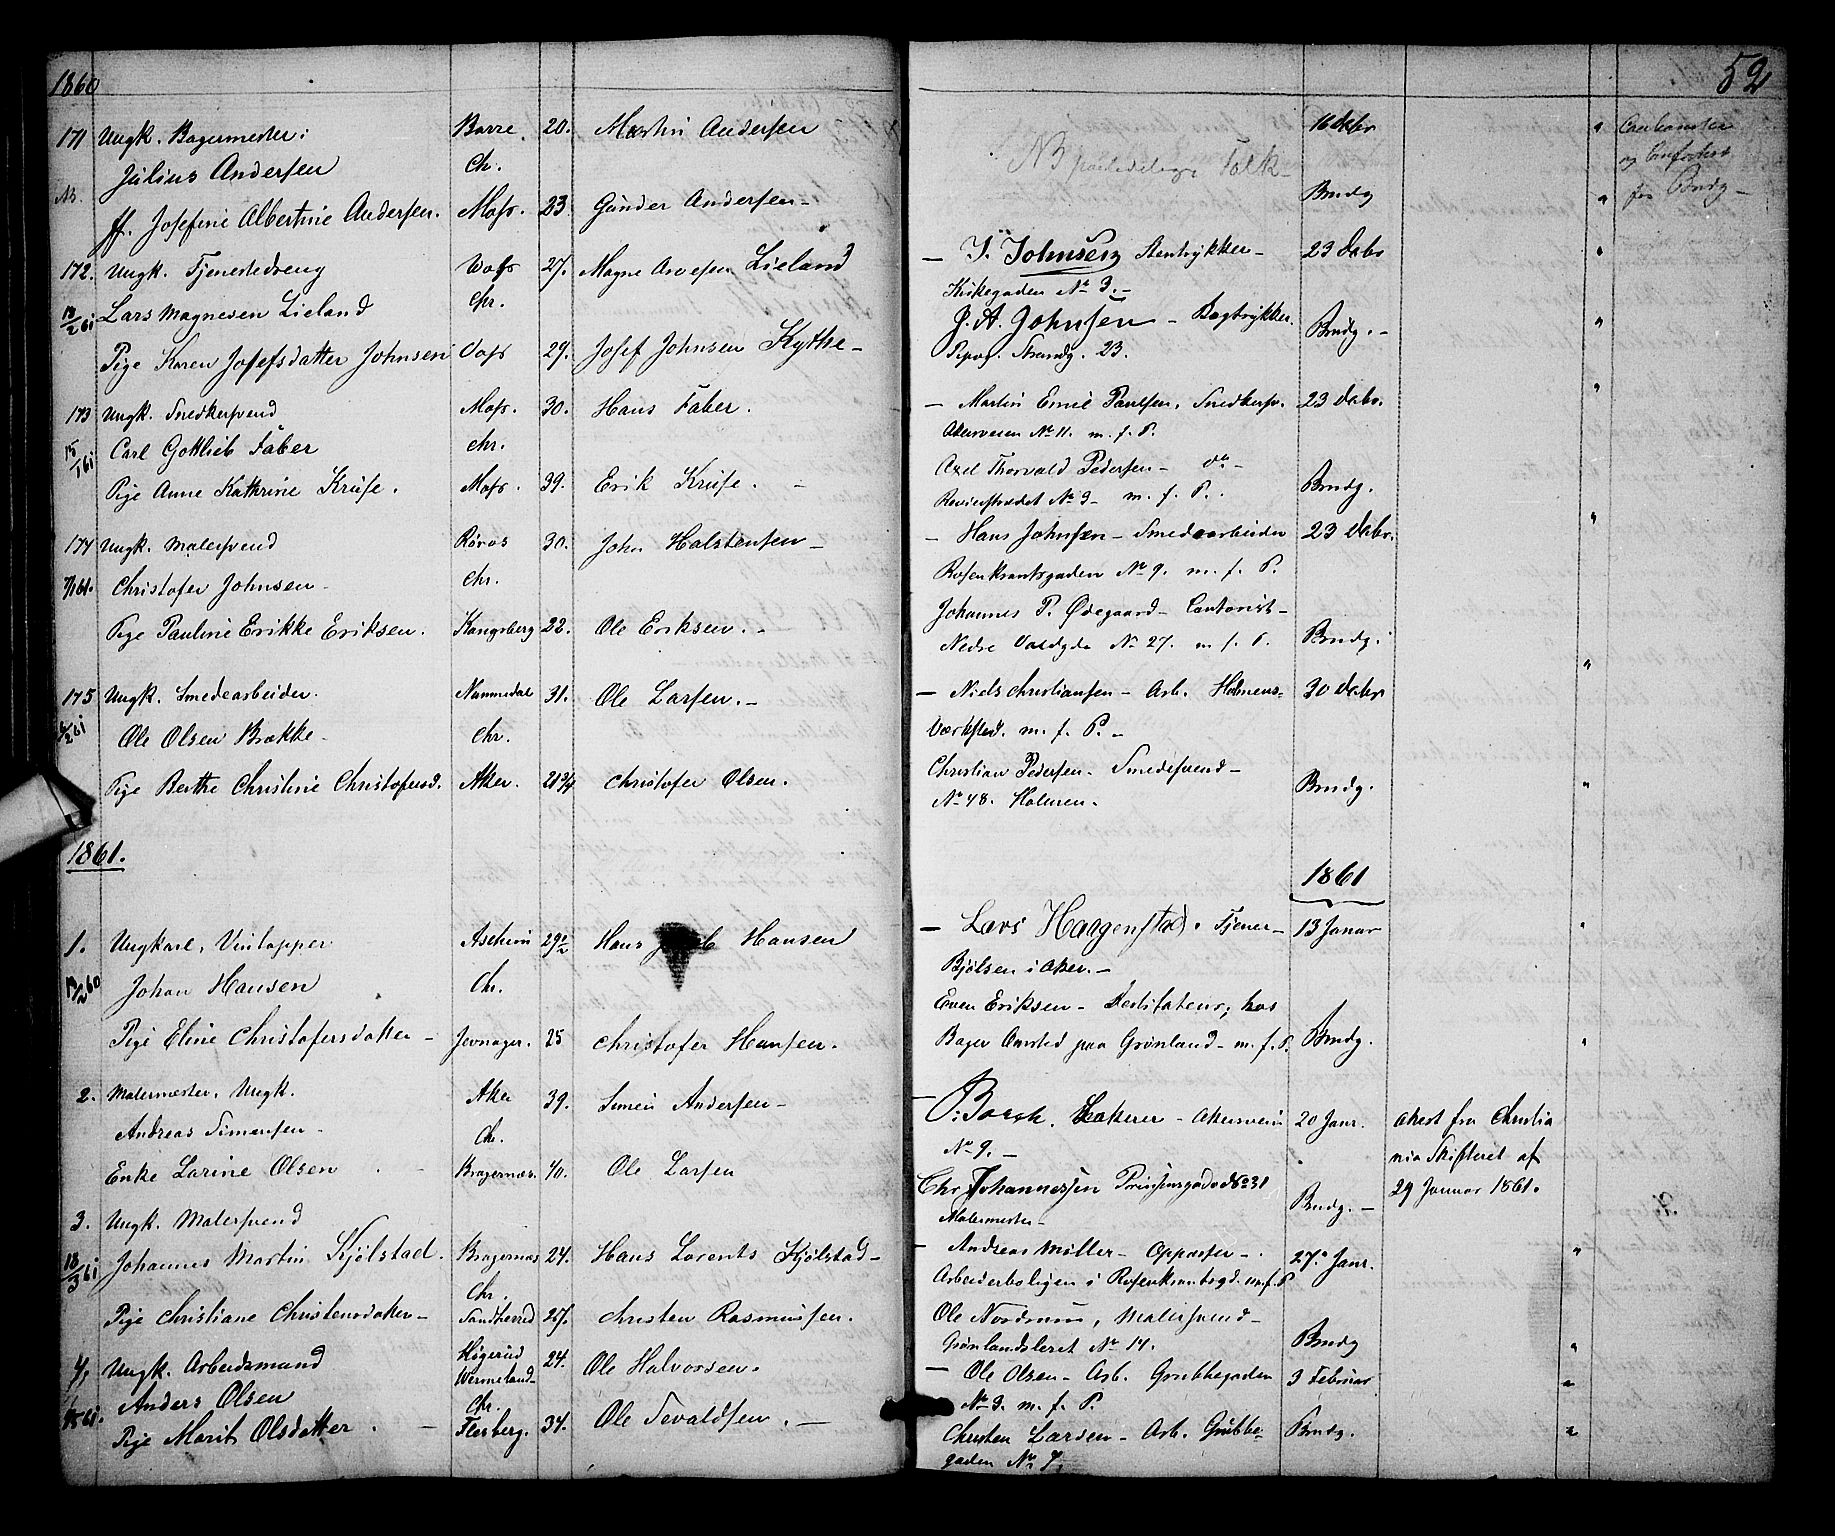 1860
52
171 Ungk. Bagermester: Borre 20. Martin Andersen 16 Debr "
Julius Andersen Chr.
NB paalidelige Folk
ff. Josefine Albertine Andersen. Moss. 23 Gunder Andersen Brudg "
172. Ungk. Tjenestedreng Voss 27. Magne Arvesen Lieland — J. Johnsen Stentrykker — 23 Debr "
Lars Magnesen Lieland Chr. Kirkegaden No 3. —
J. A. Johnsen — Bogtrykker. Brudg. — "
Pige Karen Josefsdatter Johnsen Voss 29. Josef Johnsen Kythe — Piperv. Strandg. 23.
173 Ungk. Snedkersvend Moss. 30. Hans Faber. — Martin Emil Paulsen, Snedkersv. 23 Debr. "
15/1 61 Carl Gottlieb Faber Chr. Akersveien No 11. m. f. P.
Axel Thorvald Pedersen — do —
Pige Anne Kathrine Kruse. Moss. 39. Erik Kruse. — No 3 — m. f. P. Brudg.
174 Ungk. Malersvend Røros 30. John Halstensen — — Hans Johnsen — Smedearbeider 23 Debr. "
Christofer Johnsen — Chr. Rosenkrantzgaden No 9. m. f. P.
Johannes P. Ødegaard — Contorist —
Pige Pauline Erikke Eriksen. Kongsberg 22. Ole Eriksen. — Nedre Voldgde No 27. m. f. P. Brudg. "
175 Ungk. Smedearbeider. Nummedal 31. Ole Larsen. — — Niels Christiansen — Arb. Holmens 30 Debr
Ole Olsen Brække — Chr. Værksted. m. f. P. —
Christian Pedersen — Smedesvend —
Pige Berthe Christine Christofersd. Aker. 21 3/4 Christofer Olsen. No 48. Holmen. Brudg. "
1861.
1861
1. Ungkarl, Vintapper Askim 29 1/2 Hans Hansen — Lars Haagenstad. Tjener — 13 Januar "
Johan Hansen Chr. Bjølsen i Aker. —
Even Eriksen — Destilateur, hos
Pige Eline Christofersdatter — Jevnager. 25 Christofer Hansen. Bager paa Grønland — m. f. P. Brudg. "
2. Malermester, Ungk. Aker 39. Simen Andersen — — Lakerer — Akersveien 20 Janr. Attest fra Christia
Andreas Simensen — Chr. No 9. — nia Skifteret af
Enke Larine Olsen — Bragernæs. 40. Ole Larsen Chr. Johannessen Prinsensgade No 31 Brudg. — 29 Januar 1861.
Malermester —
3. Ungk. Malersvend
18/3 61 Johannes Martin Kjølstad. Bragernæs 24. Hans Lorents Kjølstad — — Andreas Møller — Oppasser — 27. Janr. "
Chr. Arbeiderboligen i Rosenkrantzgd. m. f. P
Pige Christiane Christensdatter — Sandherred 27. Christen Rasmussen. Ole Nordrum, Malersvend —
Grønlandsleret No 14. Brudg "
4. Ungk. Arbeidsmand Wermeland — 24. Ole Halvorsen. — Ole Olsen — Arb. Grubbegaden 3 Februar "
Anders Olsen Chr. No 3. m. f. P.
Pige Marit Olsdatter. — Flesberg. 34. Ole Sevaldsen. — Christen Larsen — Arb. Grubbe- Brudg. "
gaden No 7.